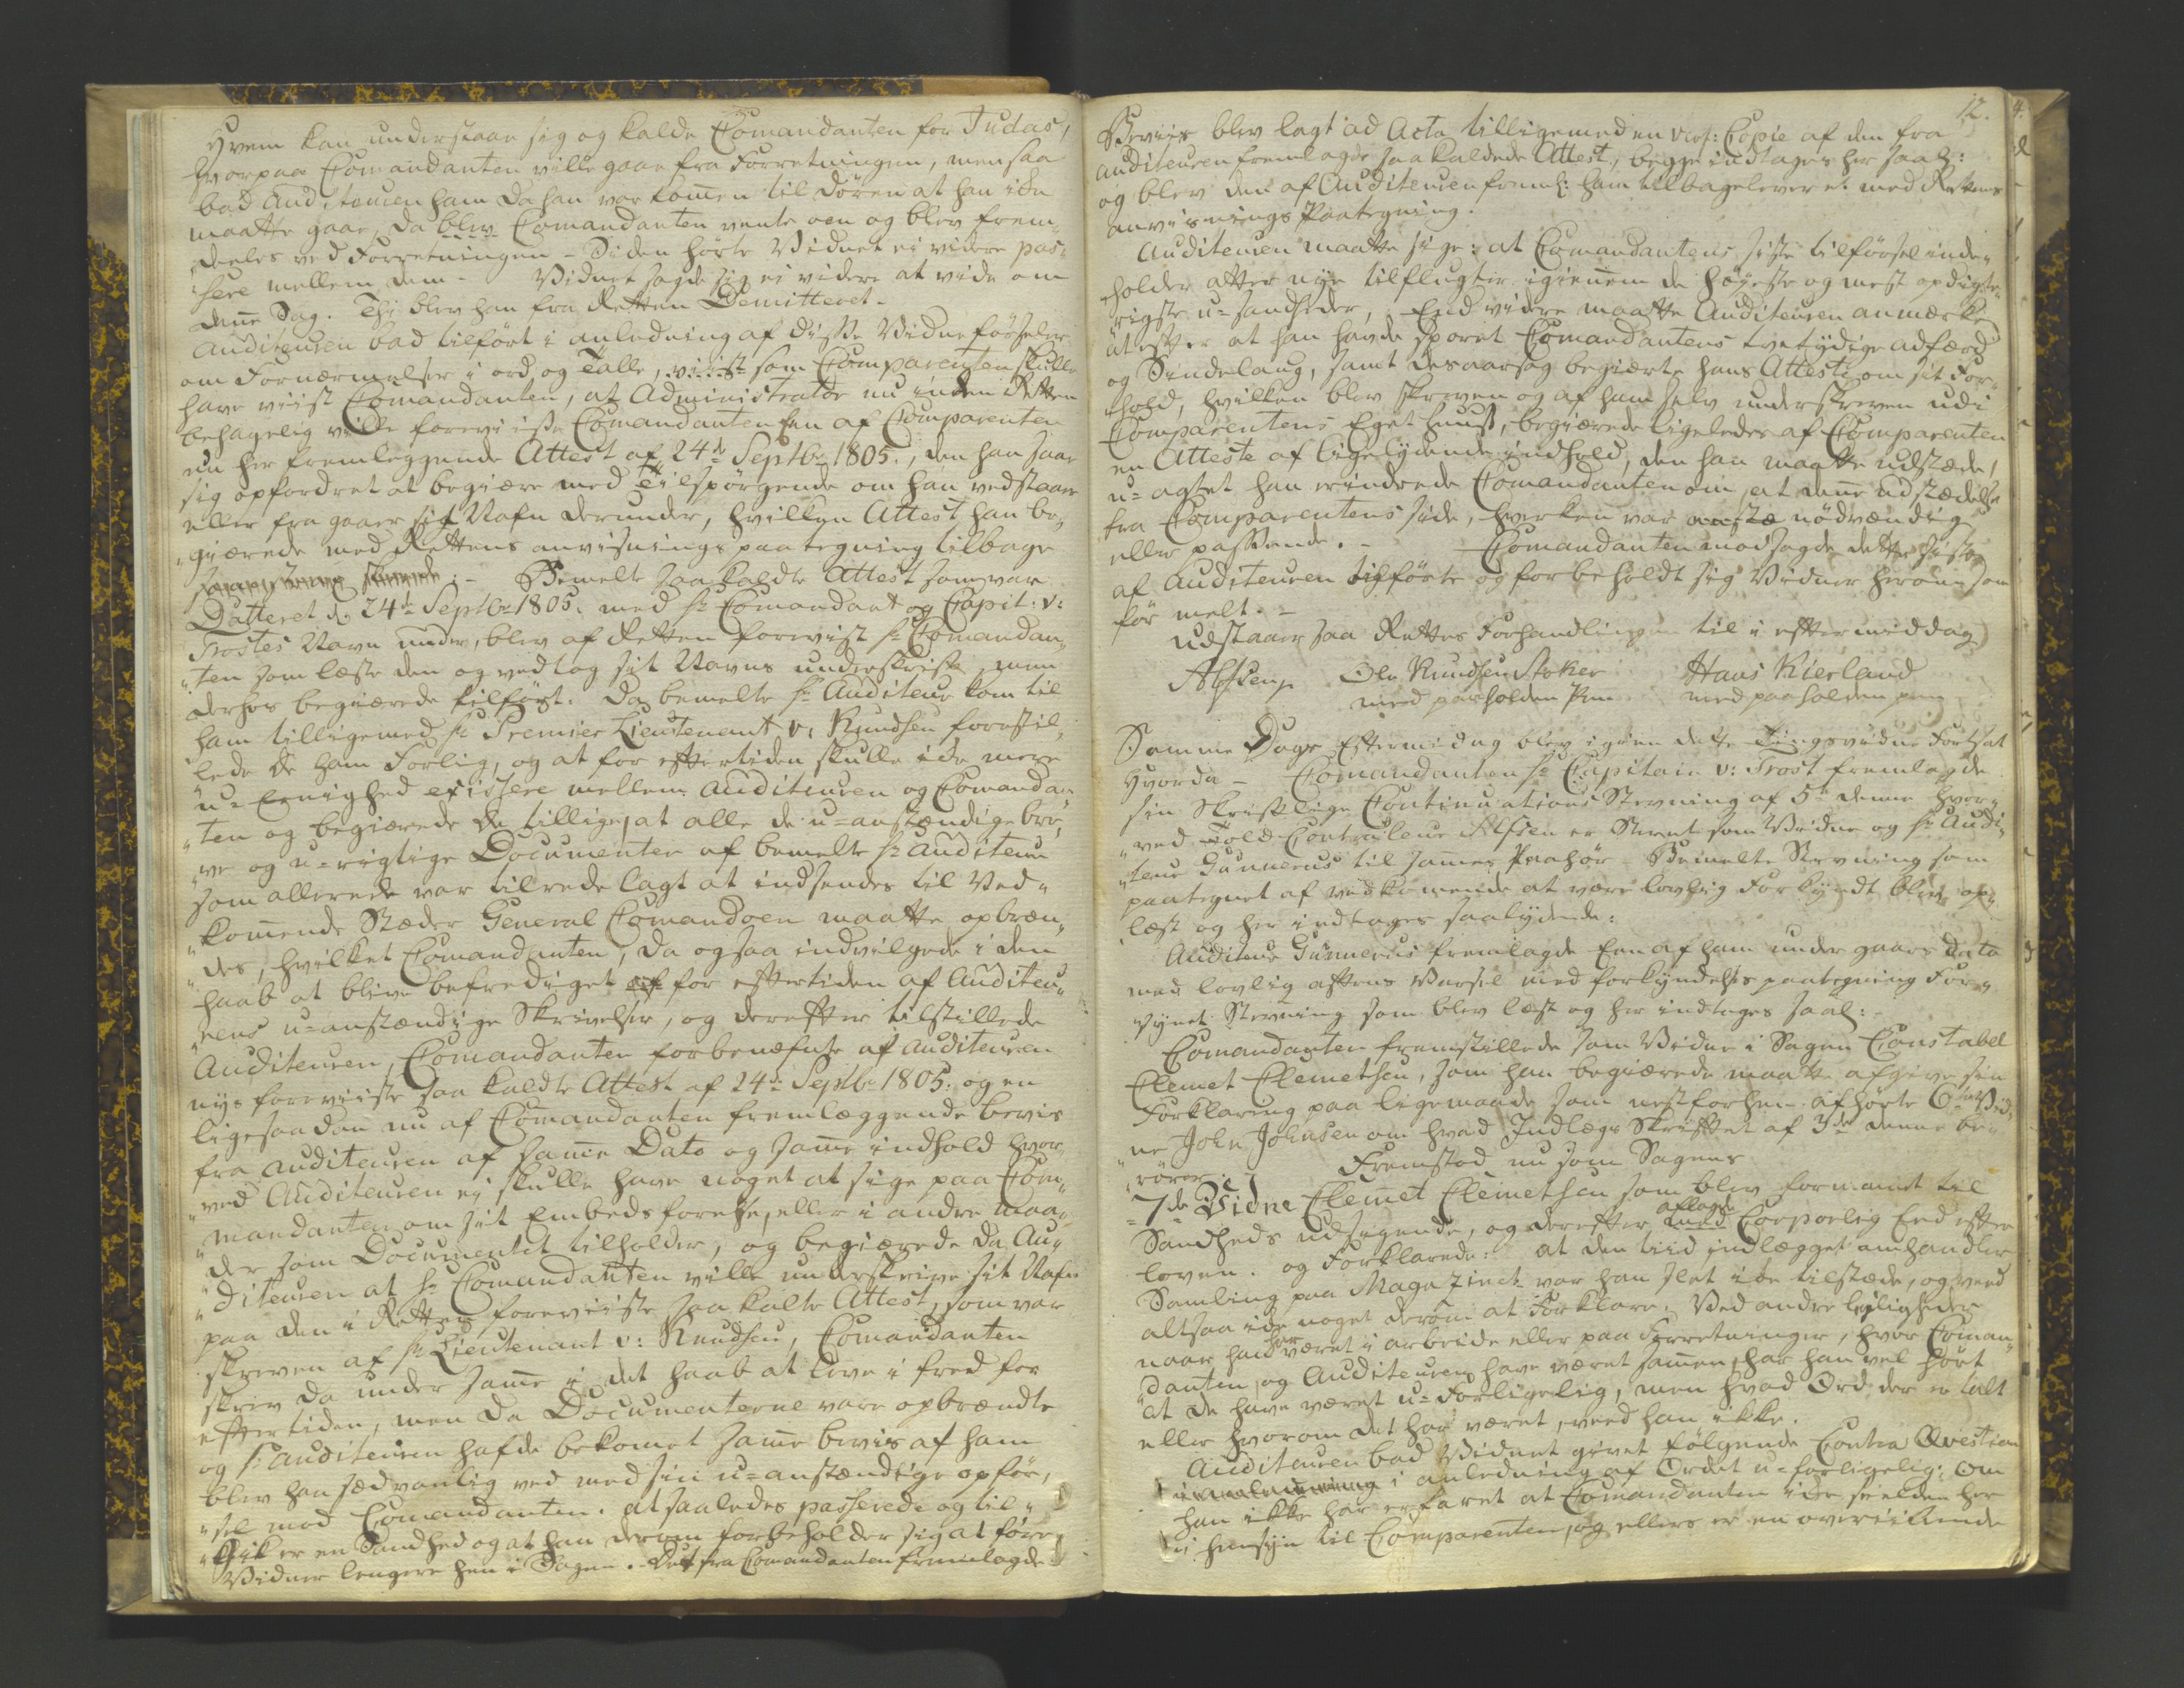 Hvem kan understaae sig og kalde Comandanten for Judas,
hvorpaa Comandanten ville gaae fra Forretningen, men saa
bad Auditeuren ham da han var komen til Dören at han icke
maatte gaae, da blev Comandanten vente om og blev frem„
„deeles ved Forretningen – Siden hörte Vidnet ei videre pas„
sere mellem dem – Vidnet sagde sig ei videre at vide om
dene Sag. Thi blev han fra Retten Demitteret –
Auditeuren bad tilfört i anledning af disse Vidneförseler
om Fornærmelser i ord og Talle, viist som Comparenten skulle
have viist Comandanten, at Administrator nu inden Retten
behagelig ville foreviise Comandanten en af Comparenten
nu her fremleggende Attest af 24de Septbr 1805., den han saae
sig opfordret at begiære med Tilspörgende om han vedstaaer
eller fra gaaer sit Nafn derunder, hvilken Attest han be„
„giærede med Rettens anvisnings paategning tilbage
Bemelte saakaldte Attest som var
Datteret d. 24de Septbr 1805. med Hr Comandant og Capit: v:
Trostes Navn under, blev af Retten forevist Hr Comandan„
„ten som læste den og vedtog sit Navns underskrift, men
derhos begiærede tilfört: Da bemelte Hr Auditeur kom til
ham tilligemed Hr Premier Lieutenant v: Knudsen forestil„
lede de ham Forlig, og at for eftertiden skulle icke mere
u=Eenighed exissere mellem Auditeuren og Comandan„
„ten og begiærede de tillige, at alle de u=anstændige bre„
„ve og u=rigtige Documenter af bemelte Hr Auditeur
som allerede var tilrede lagt at indsendes til Ved„
„komende Stæder General Comandoen maatte opbræn„
„des, hvilket Comandanten, da ogsaa indvilgede i den
haab at blive befrediget for eftertiden af Auditeu„
„rens u=anstændige Skrivelser, og derefter tilstillede
Auditeuren, Comandanten forbenæfnte af Auditeuren
nys foreviiste saa kaldte Attest af 24de Septbr 1805. og en
ligesaadan nu af Comandanten fremlæggende bevis
fra Auditeuren af same Dato og same indhold hvor„
„ved Auditeuren ej skulle have noget at sige paa Com„
„mandanten om sit Embeds forelse, eller i andre maa„
„der som Documentet tilholder, og begiærede da Au„
„diteuren at Hr Comandanten ville underskrive sit Nafn
paa den i Retten foreviiste saa kalte Attest, som var
skreven af Hr Lieutenant v: Knudsen, Comandanten
skrev da under same i det haab at leve i fred for
eftertiden, men da Documenterne vare opbrændte
og Hr Auditeuren hafde bekomet same bevis af ham
blev han sædvanlig ved med sin u=anstændige opför„
„sel mod Comandanten. at saaledes passerede og til„
„gik er en Sandhed og at han derom forbeholder sig at före
Vidner lengere hen i Sagen. Det fra Comandanten fremlagde
12.
Beviis blev lagt ad Acta tilligemed en vid: Copie af den fra
Auditeuren fremlagde saakaldede Attest, begge indtages her saal:
og blev den af Auditeuren freml: ham tilbageleveret med Rettens
anvisnings Paategning.
Auditeuren maatte sige: at Comandantens siste tilförsel inde„
holder atter nye tilflugter igienem de höyeste og mest opdigte„
„rigste u=sandheder, End videre maatte Auditeuren anmærke
at efter at han havde sporet Comandantens tvetydige adfærd
og Sindelaug, samt desaarsag begiærte hans Attest om sit For„
„hold, hvilken blev skreven og af ham selv underskreven udi
Comparentens Eget Huus, begiærede ligeledes af Comparenten
en Atteste af ligelydende indhold, den han maatte udstæde,
u=agtet han erindrede Comandanten om, at dene udstædelse
fra Comparentens side, hverken var nödvændig
eller passende. – Comandanten modsagde dette siste
af Auditeuren tilförte og forbeholdt sig Vidner herom som
för melt. –
Udstaaer saa Rettes Forhandlingen til i eftermiddag
Ole Knudsen Stoker Hans Kierland
med paaholden Pen med paaholden pen
Samme Dags Eftermidag blev igien dette Tingsvidne Forsat
Hvorda – Comandanten Hr Capitain v: Trost fremlagde
sin skriftlige Continuations Stevning af 5te denne hvor„
„ved Told Controleur Alsien er Stevnet som Vidne og Hr Audi„
„teur Gunnerus til sammes Paahör – Bemelte Stevning som
paategnet af vedkomende at være lovlig Forkyndt blev op„
„læst og her indtages saalydende:
Auditeur Gunnerus fremlagde Een af ham under gaars Dato
med lovlig aftens Varsel med forkyndelses paategning For„
„synet Stevning som blev læst og her indtages saal: –
Comandanten fremstillede som Vidne i Sagen Constabel
Clemet Clemetsen, som han begiærede maatte afgive sin
Forklaring paa ligemaade som næstforhen afhörte 6te Vid„
„ne John Johnsen om hvad Indlægs Skriftet af 3de denne be„
„rörer. Fremstod nu som Sagens
7de Vidne Clemet Clemetsen som blev formanet til
Sandheds udsigende, og derefter aflagde Corporlig Eed efter
loven. og Forklarede: at den tiid indlægget omhandler
Samling paa Magazinet var han slet icke tilstæde, og veed
altsaa icke noget derom at Forklare. Ved andre leyligheder
naar han har været i arbeide eller paa Forretninger, hvor Coman„
„danten og Auditeuren have været sammen, har han vel hört
at de have været u=Forligelig, men hvad Ord der er talt
eller hvorom det har været, veed han ikke.
Auditeuren bad Vidnet givet fölgende Contra Qvestion
i anledning af Ordet u=forligelig: Om
han ikke har erfaret at Comandanten icke sielden her
i hensyn til Comparenten, og ellers er en overiilende